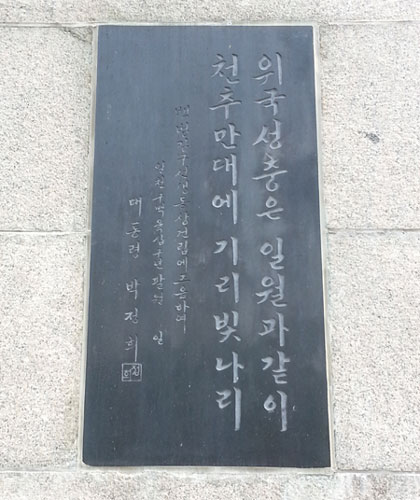 위국성충은 일월과같이
천추만대에 기리빛나리
백범김구선생동상건립에즈음하여
일천구백육십구년팔월 일
대통령 박정희